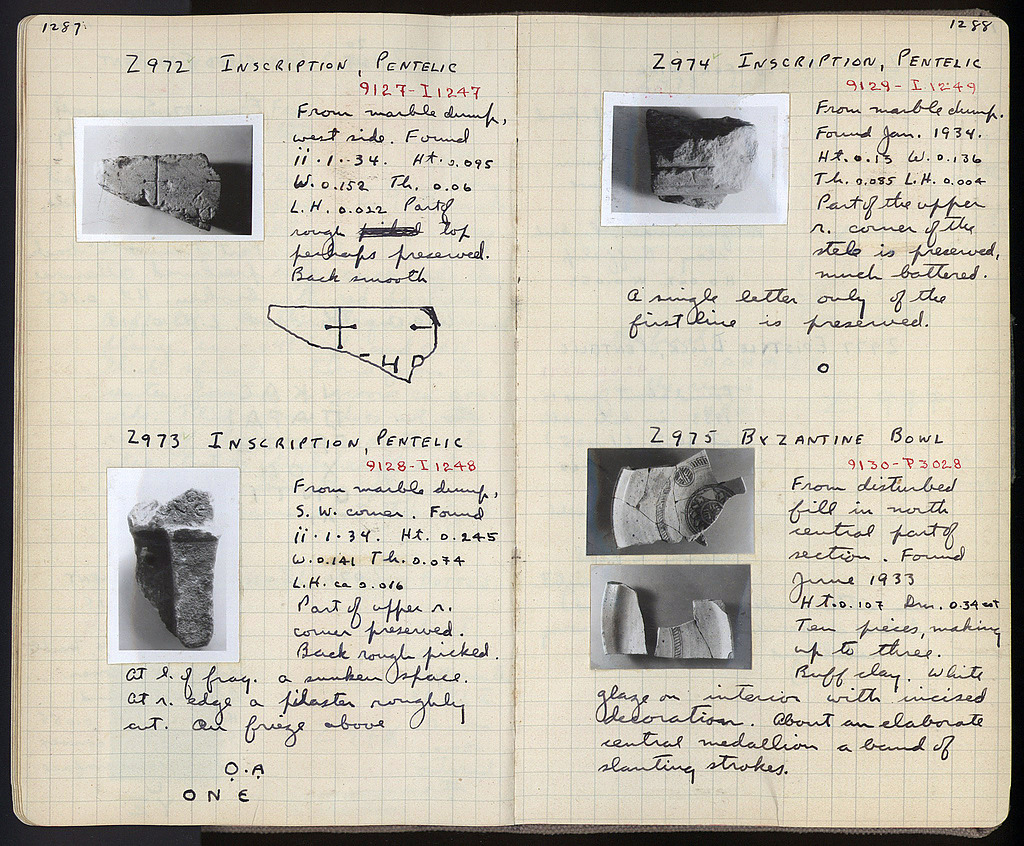 1287
Z972 INSCRIPTION, PENTELIC
9127-I1247
From marble dump,
west side. Found
ii·1·34. Ht. 0.095
W. 0.152 Th. 0.06
L.H. 0.022 Part of
rough top
perhaps preserved.
Back smooth
- H P
Z973 INSCRIPTION, PENTELIC
9128-I1248
From marble dump,
S.W. corner. Found
ii·1·34. Ht. 0.245
W. 0.141 Th. 0.074
L.H. ca 0.016
Part of upper r.
corner preserved.
Back rough picked.
At l. of frag. a sunken space.
At r. edge a pilaster roughly
cut. On frieze above
O.A
O N E
1288
Z974 INSCRIPTION, PENTELIC
9129-I1249
From marble dump.
Found Jan. 1934.
Ht. 0.15 W. 0.136
Th. 0.085 L.H. 0.004
Part of the upper
r. corner of the
stele is preserved,
much battered.
A single letter only of the
first line is preserved.
O
Z975 BYZANTINE BOWL
9130-P3028
From disturbed
fill in north
central part of
section. Found
June 1933
Ht. 0.107 Dm. 0.34 est
Ten pieces, making
up to three.
Buff clay. White
glaze on interior with incised
decoration. About an elaborate
central medallion a band of
slanting strokes.